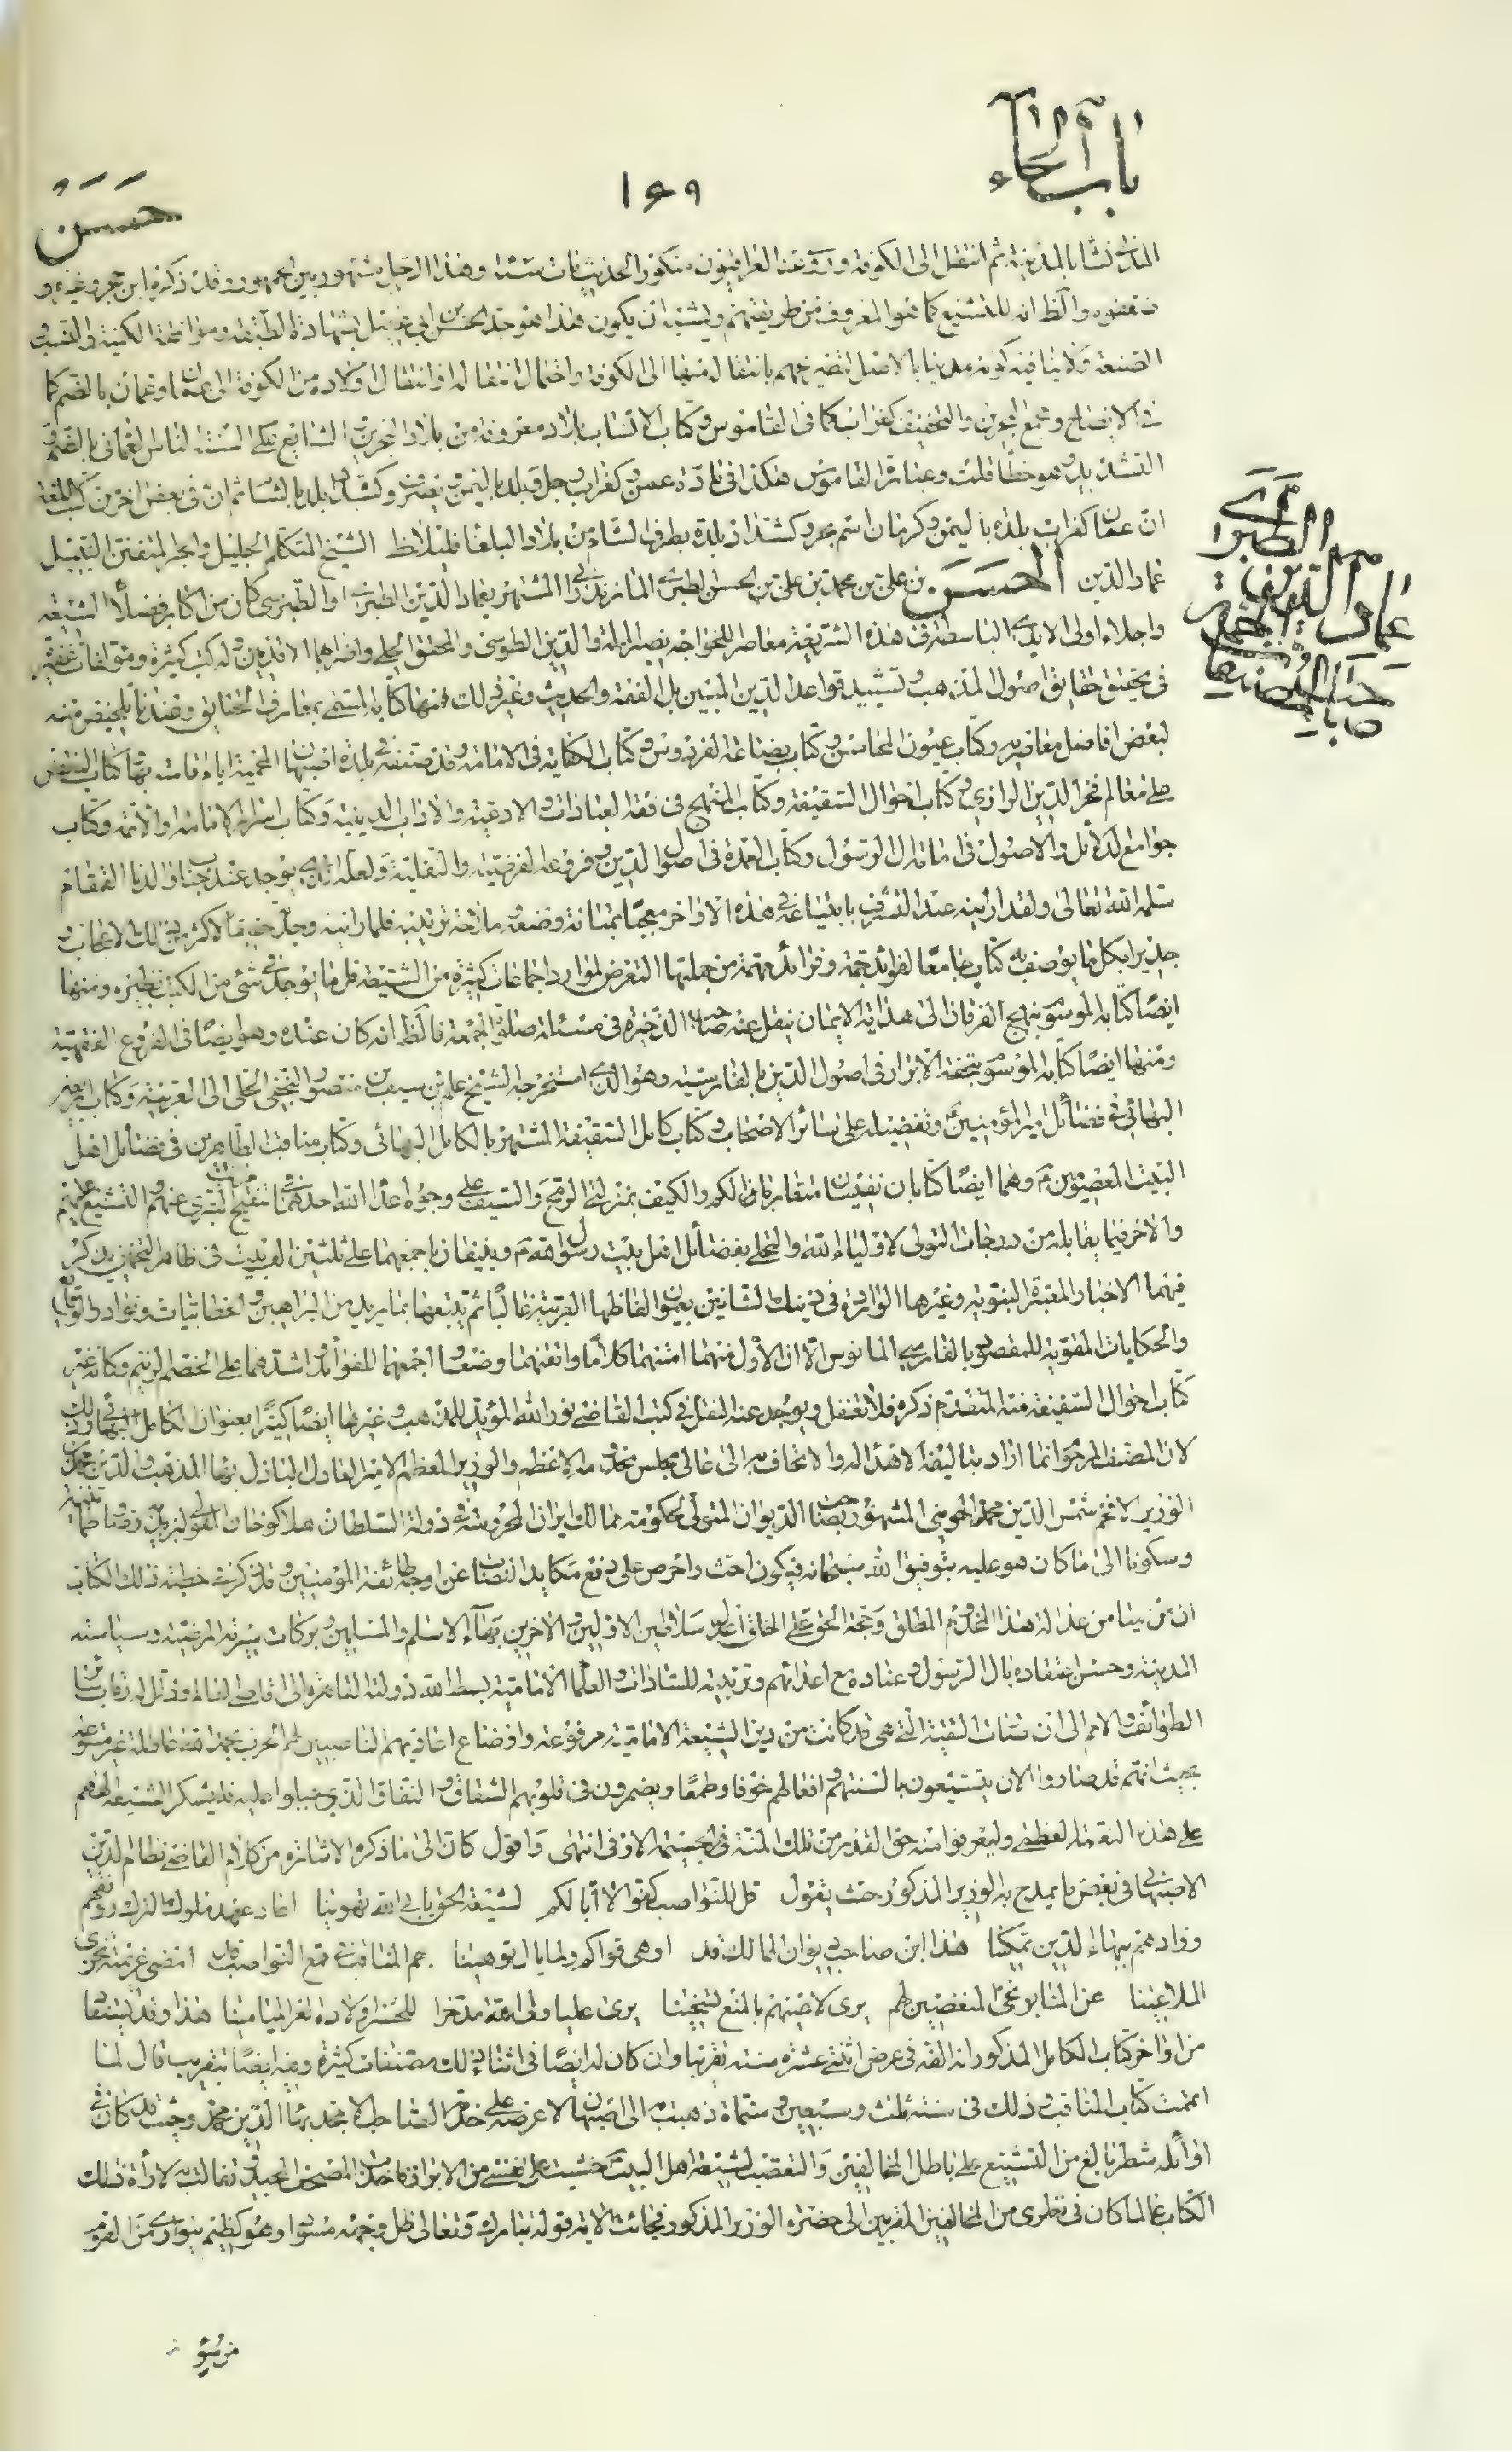 باب الحاء
١٦٩
حسن
ثم انتقل الى الكوفة وروى عنه العراقيون منكور الحديث مات سنة وهذا الرجل مشهور بين الجمهور وقد ذكره ابن حجر وغيره و
ضعفوه والظ انه للتشيع كما هو المعروف من طريقتهم ويشبه ان يكون هذا هو جد الحسن بن ابي عقيل بشهادة الطبقة وموافقة الكنية والنسب و
الصنعة ولا ينافيه كونه مدنيا بالاصل لتصريحهم بانتقاله منها الى الكوفة واحتمال انتقاله او انتقال اولاده من الكوفة الى عمان وعمان بالضم كما
في الايضاح ومجمع البحرين والتخفيف كغراب كما في القاموس وكتاب الانساب بلاد معروفة من بلاد البحرين الشايع على السنة الناس العماني بالضم و
التشديد وهو خطأ قلت وعبارة القاموس هكذا في مادة عمن وكغراب رجل وبلد باليمن ويصرف وكشداد بلد بالشام ثم ان في بعض اخر من كتب اللغة
ان عمان كغراب بلدة باليمن وكرمان اسم بحر وكشداد بلدة بطرف الشام من بلاد البلقا فليلاحظ الشيخ المتكلم الجليل والبحر المتفنن النبيل
عماد الدين الحسن بن علي بن محمد بن علي بن الحسن الطبري المازندراني المشتهر بعماد الدين الطبري او الطبرسي كان من اكابر فضلاء الشيعة
واجلاء اولى الايدي الباسطة في هذه الشريعة معاصر للخواجه نصير الملة والدين الطوسي والمحقق الحلي واضرابهما الاقدمين وله كتب كثيرة ومؤلفات غفيرة
في تحقيق حقايق اصول المذهب وتشييد قواعد الدين المبين بل الفقه والحديث وغير ذلك فمنها كتابه المسمى بمعارف الحقايق وعندنا تلخيص منه
لبعض افاضل معاصريه وكتاب عيون المحاسن وكتاب بضاعة الفردوس وكتاب الكفاية في الامامة وقد صنفه في بلدة اصبهان المحمية ايام اقامته بها وكتاب النقض
على معالم فخر الدين الرازي وكتاب احوال السقيفة وكتاب المنهج في فقه العبادات والادعية والاداب الدينية وكتاب اسرار الامامة او الائمة وكتاب
جوامع الدلائل والاصول في امامة ال الرسول وكتاب العمدة في اصول الدين وفروعه الفرضية والنفلية ولعله الذي يوجد عند جناب والدنا القمقام
سلمه الله تعالى ولقد رايته عند التشرف
جدير بكل ما يوصف به كتاب جامعا لفوائد جمة وفرائد مهمة من جملتها التعرض لموارد اجماعات كثيرة من الشيعة قل ما يوجد في شيء من الكتب نظيره ومنها
ايضا كتابه الموسوم بنهج الفرقان الى هداية الايمان ينقل عنه صاحب الذخيرة في مسئلة صلوة الجمعة فالظ انه كان عنده وهو ايضا في الفروع الفقهية
ومنها ايضا كتابه الموسوم بتحفة الابرار في اصول الدين بالفارسية وهو الذي استخرجه الشيخ علي بن سيف بن منصور النجفي الحلي الى العربية وكتاب اربعين
البهائي في فضائل امير المؤمنين ع وتفضيله على سائر الاصحاب وكتاب كامل السقيفة المشتهر بالكامل البهائي وكتاب مناقب الطاهرين في فضائل اهل
البيت المعصومين ع وهما ايضا كتابان نفيسان متقاربان في الكم والكيف بمنزلتي الرمح والسيف على وجوه اعداء الله
والاخر فيما يقابله من درجات التولي لاولياء الله والتحلي بفضائل اهل بيت رسول الله ص
فيهما الاخبار المعتبرة النبوية وغيرها الواردة في ذينك الشانين بعيون الفاظها العربية غالبا ثم يتبعها بما يريد من البراهين والخطابيات ونوادر الوقايع
والحكايات المقوية للمقصود بالفارسي المانوس الا ان الاول منهما امتنهما كلاما واتقنهما وضعا واجمعهما للفوائد واشدهما على الخصم الزنيم وكانه غير
كتاب احوال السقيفة منه المتقدم ذكره فلا تغفل ويوجد عنه النقل في كتب القاضي نور الله المؤيد للمذهب وغيرها ايضا كثيرا بعنوان الكامل البهائي وذلك
لان المصنف المرحوم انما اراد بتاليفه الاهداء له والاتحاف به الى عالي مجلس مخدومه الاعظم والوزير المعظم الامير العادل الباذل بهاء المذهب والدين محمد بن
الوزير الافخم شمس الدين محمد الجويني المشهور بصاحب الديوان المتولي لحكومة ممالك ايران المحروسة في دولة السلطان هلاكو خان المغولي
وسكونا الى ما كان هو عليه بتوفيق الله سبحانه من كونه احث واحرص على دفع مكايد النصاب عن وجه طائفة المؤمنين وقد ذكر في خطبة ذلك الكتاب
ان من يمامن عدالة هذا المخدوم المطلق وحجة الحق على الخلق اعدل سلاطين الاولين والاخرين بهاء الاسلام والمسلمين وبركات سيرته المرضية وسياسته
المدنية وحسن اعتقاده بال الرسول وعناده مع اعدائهم وتربيته للسادات والعلماء الامامية بسط الله دولته القاهرة الى اقاصي البقاع وذلل له رقاب سائر
الطوائف والامم الى ان سمات التقية التي هي قد كانت من دين الشيعة الامامية مرفوعة واوضاع اعاديهم الناصبين لهم الحرب
بحيث انهم قد صاروا الان يتشيعون بالسنتهم وافعالهم خوفا وطمعا ويضمرون في قلوبهم الشقاق والنفاق الذي جبلوا عليه فليشكر الشيعة الههم
على هذه النعمة العظمى وليعرفوا منه حق القدر من تلك المنة الجسيمة الاوفى انتهى واقول كان الى ما ذكره الاشارة من كلام القاضي نظام الدين
الاصبهاني في بعض ما يمدح به الوزير المذكور حيث يقول قل للنواصب كفوا لا ابا لكم لشيعة الحق يابى الله تهوينا اعاد عهد ملوك الترك رونقهم
وزادهم ببهاء الدين تمكينا هذا ابن صاحب ديوان الممالك قد اوهى قواكم وما يالوه توهينا جم المناقب في قمع النواصب قد امضى عزيمته
الملاعينا عن المنابر نحى المبغضين لهم يرى لاعينهم بالمنع تسخينا يرى عليا ولي الله مدخرا للحشر اولاده الغر الميامينا هذا وقد يستفاد
من اواخر كتاب الكامل المذكور انه الفه في عرض اثنتي عشرة سنة تقريبا وان كان له ايضا في اثناء ذلك مصنفات كثيرة وفيه ايضا بتقريب قال لما
اتممت كتاب المناقب وذلك في سنة ثلث وسبعين وستمائة ذهبت به الى اصبهان لاعرضه على خدمة الصاحب الامجد بهاء الدين محمد وحيث قد كان في
اوائله شطر بالغ من التشنيع على باطل المخالفين والتعصب لشيعة اهل البيت ع خشيت على نفسي من الابراز فاخذت المصحف المجيد وتفالت به لاراءة ذلك
الكتاب غالما كان في نظري من المخالفين المقربين الى حضرة الوزير المذكور فجائت الاية قوله تبارك وتعالى ظل وجهه مسودا وهو كظيم يتوارى من القوم
من سوء